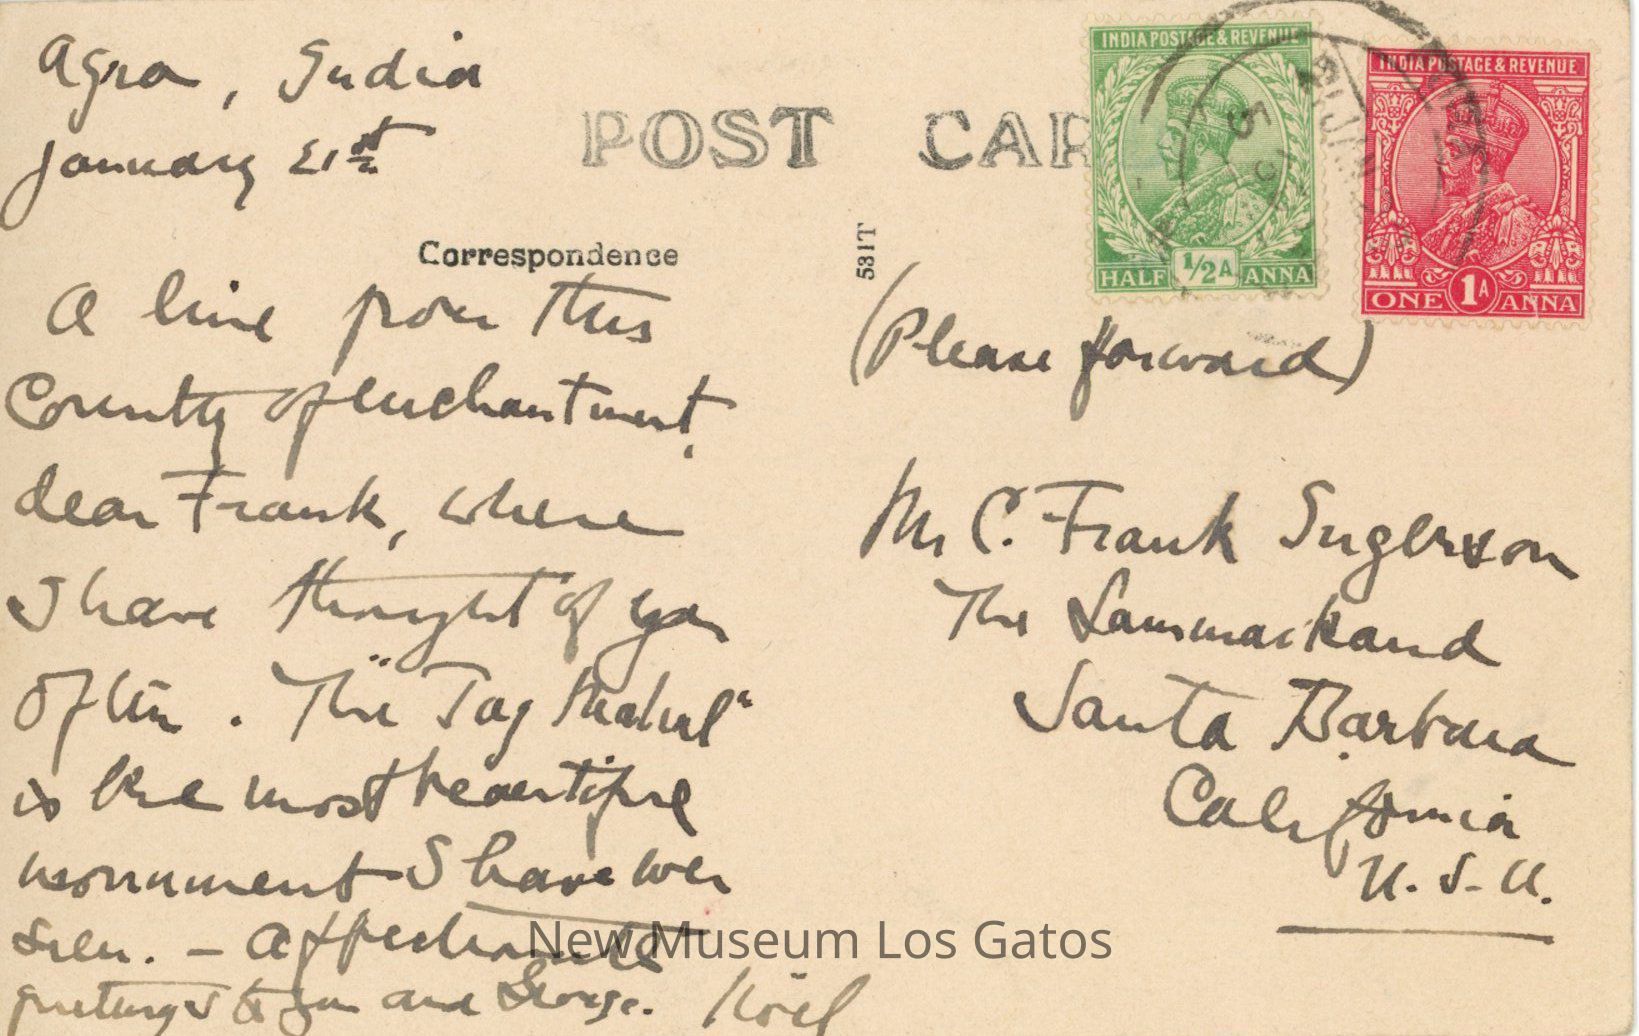 Agra, India
January 21st
POST CAR
Correspondence
531T
INDIA POSTAGE & REVENUE
1/2A
HALF ANNA
INDIA POSTAGE & REVENUE
1A
ONE ANNA
A line from this
Country of enchantment,
dear Frank, where
I have thought of you
often. The "Taj Mahal"
is the most beautiful
monument I have ever
seen. – Affectionate
greetings to you and George. Noël
(Please forward)
Mr C. Frank Ingerson
The Sammarkand
Santa Barbara
California
U.S.A.
New Museum Los Gatos